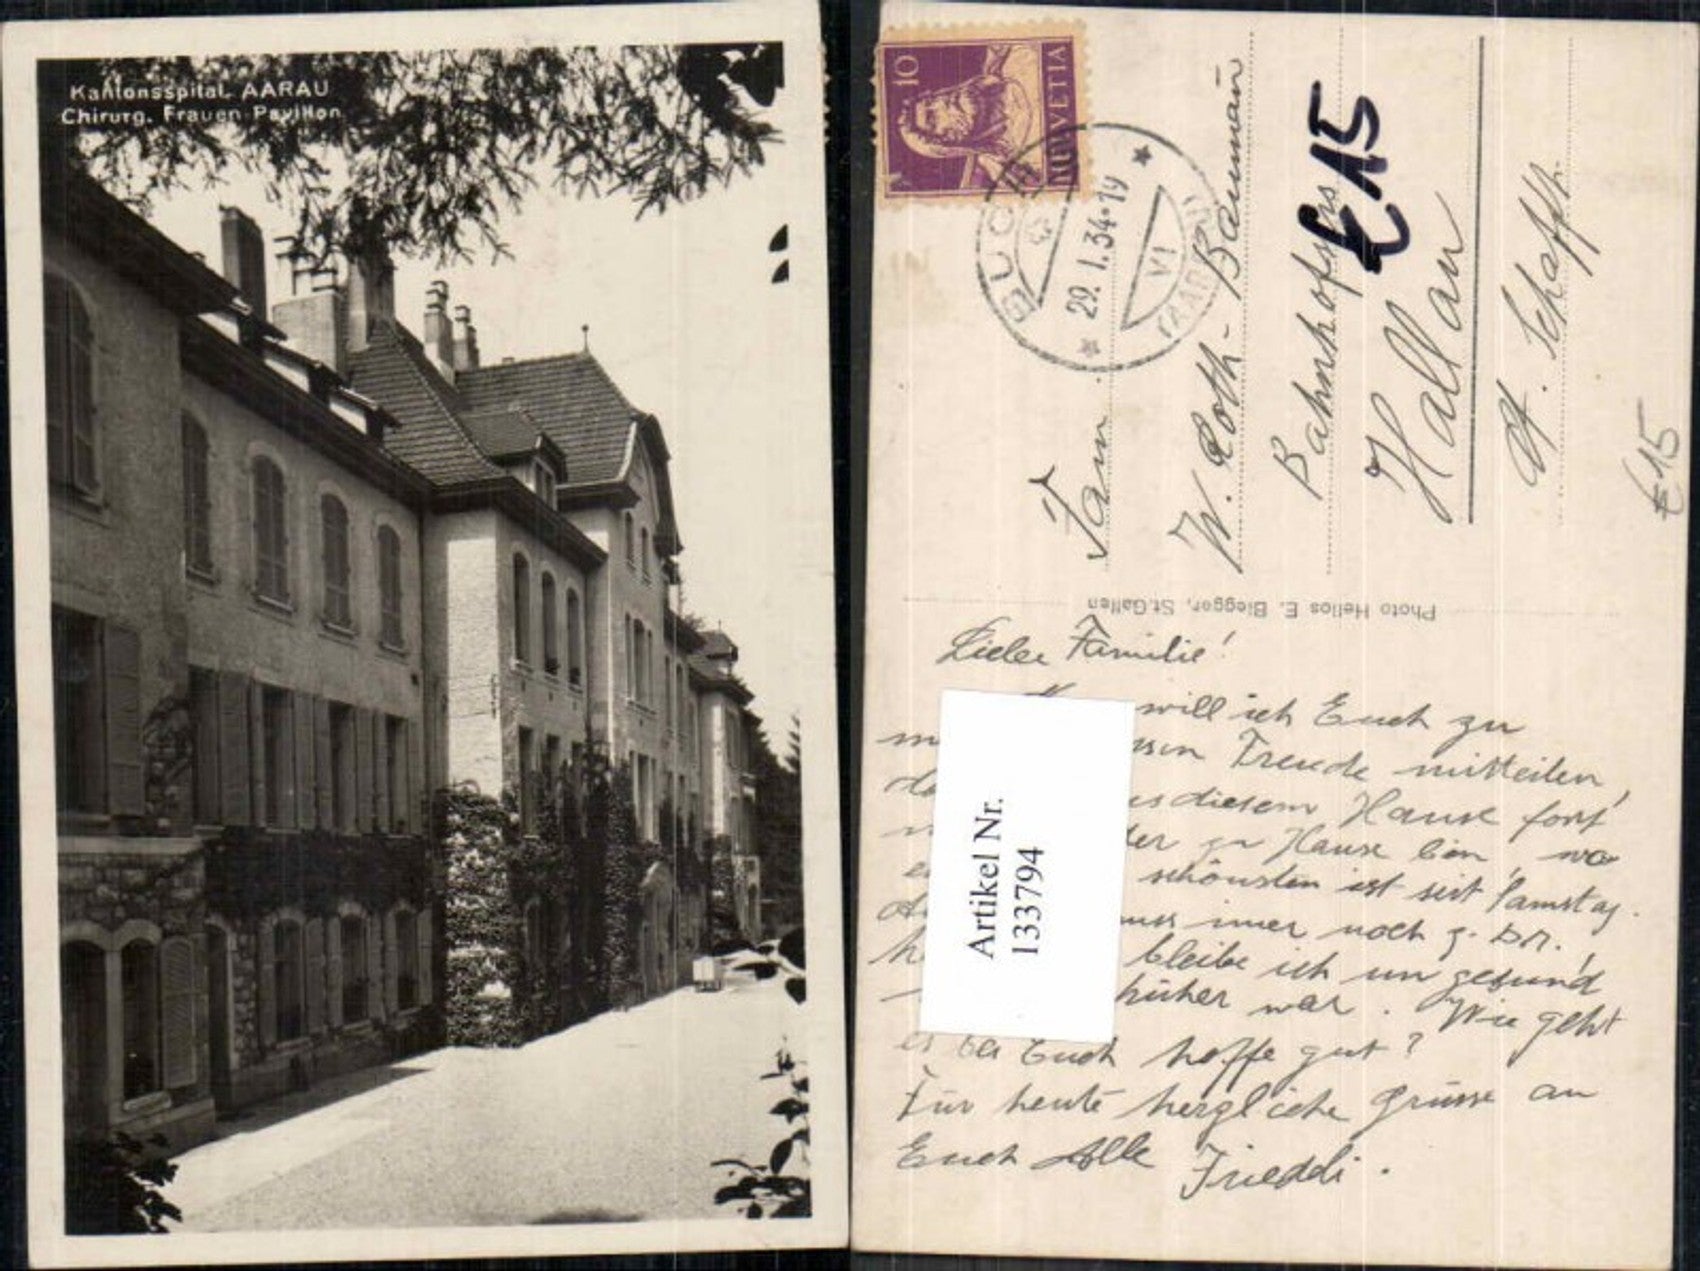 Kantonsspital. AARAU
Chirurg. Frauen Pavillon
10
HELVETIA
BUCHS
29. 1. 34 - 19
VI
(AARGAU)
Fam.
W. Roth - Baumann
Bahnhofstrs
Hallau
Ct. Schaffh.
€15
€15
Photo Helios E. Biegger, St. Gallen
Liebe Familie!
will ich Euch zu
Freude mitteilen,
diesem Hause fort
zu Hause bin, wo
schönsten ist seit Samstag.
imer noch z. Dr.
bleibe ich un gesund
früher war. Wie geht
es bei Euch hoffe gut?
Für heute herzliche Grüsse an
Euch Alle Frieddi.
Artikel Nr.
133794